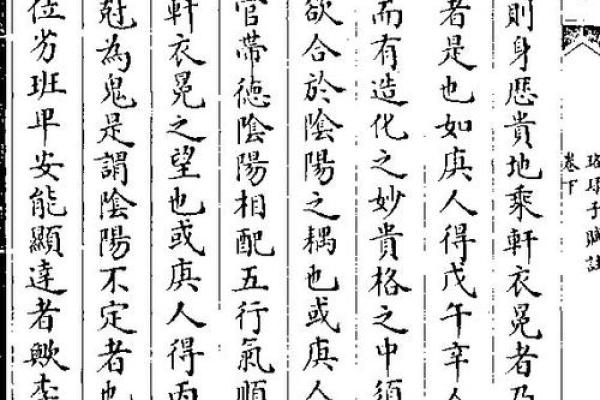 珞琭子賦註
卷下
則身歴貴地乘軒衣冕者乃
者是也如庚人得戊午辛
而有造化之妙貴格之中須
欲合於隂陽之耦也或庚人
官帶徳隂陽相配五行氣順
軒衣冕之望也或庚人得丙
尅為鬼是謂隂陽不定者也
位劣班卑安能顯達者歟李